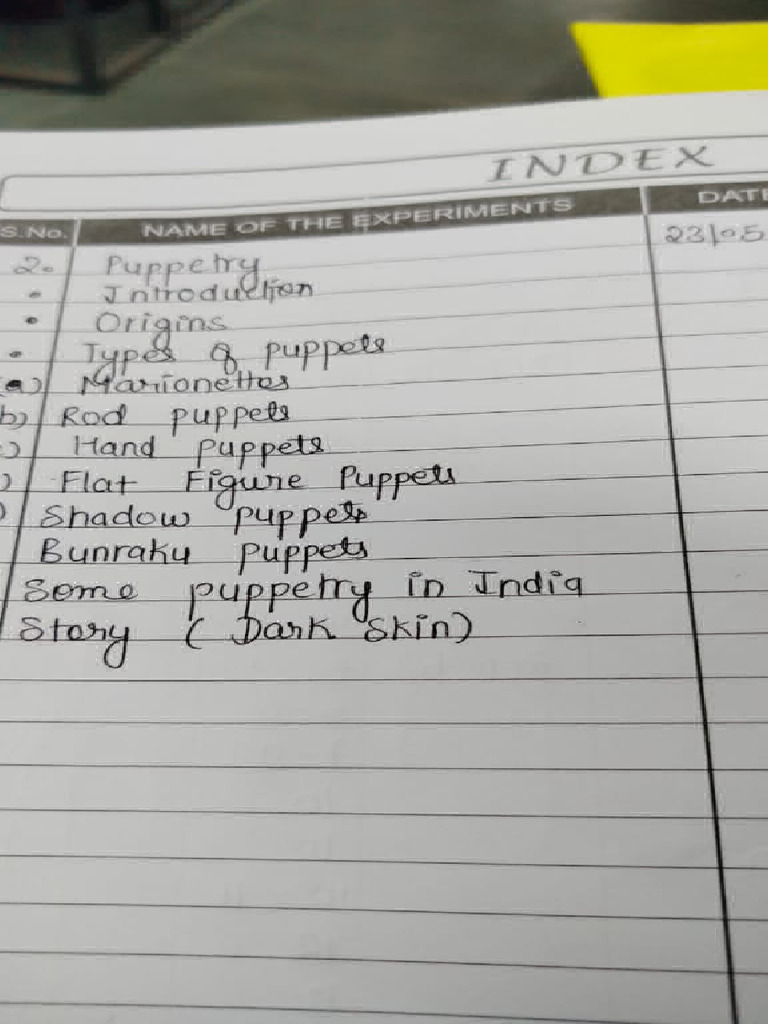 INDEX
S.No. NAME OF THE EXPERIMENTS DATE
2. Puppetry 23/05
• Introduction
• Origins
• Types of puppets
(a) Marionettes
b) Rod puppets
) Hand puppets
) Flat Figure Puppets
) Shadow puppets
Bunraku puppets
Some puppetry in India
Story ( Dark Skin)